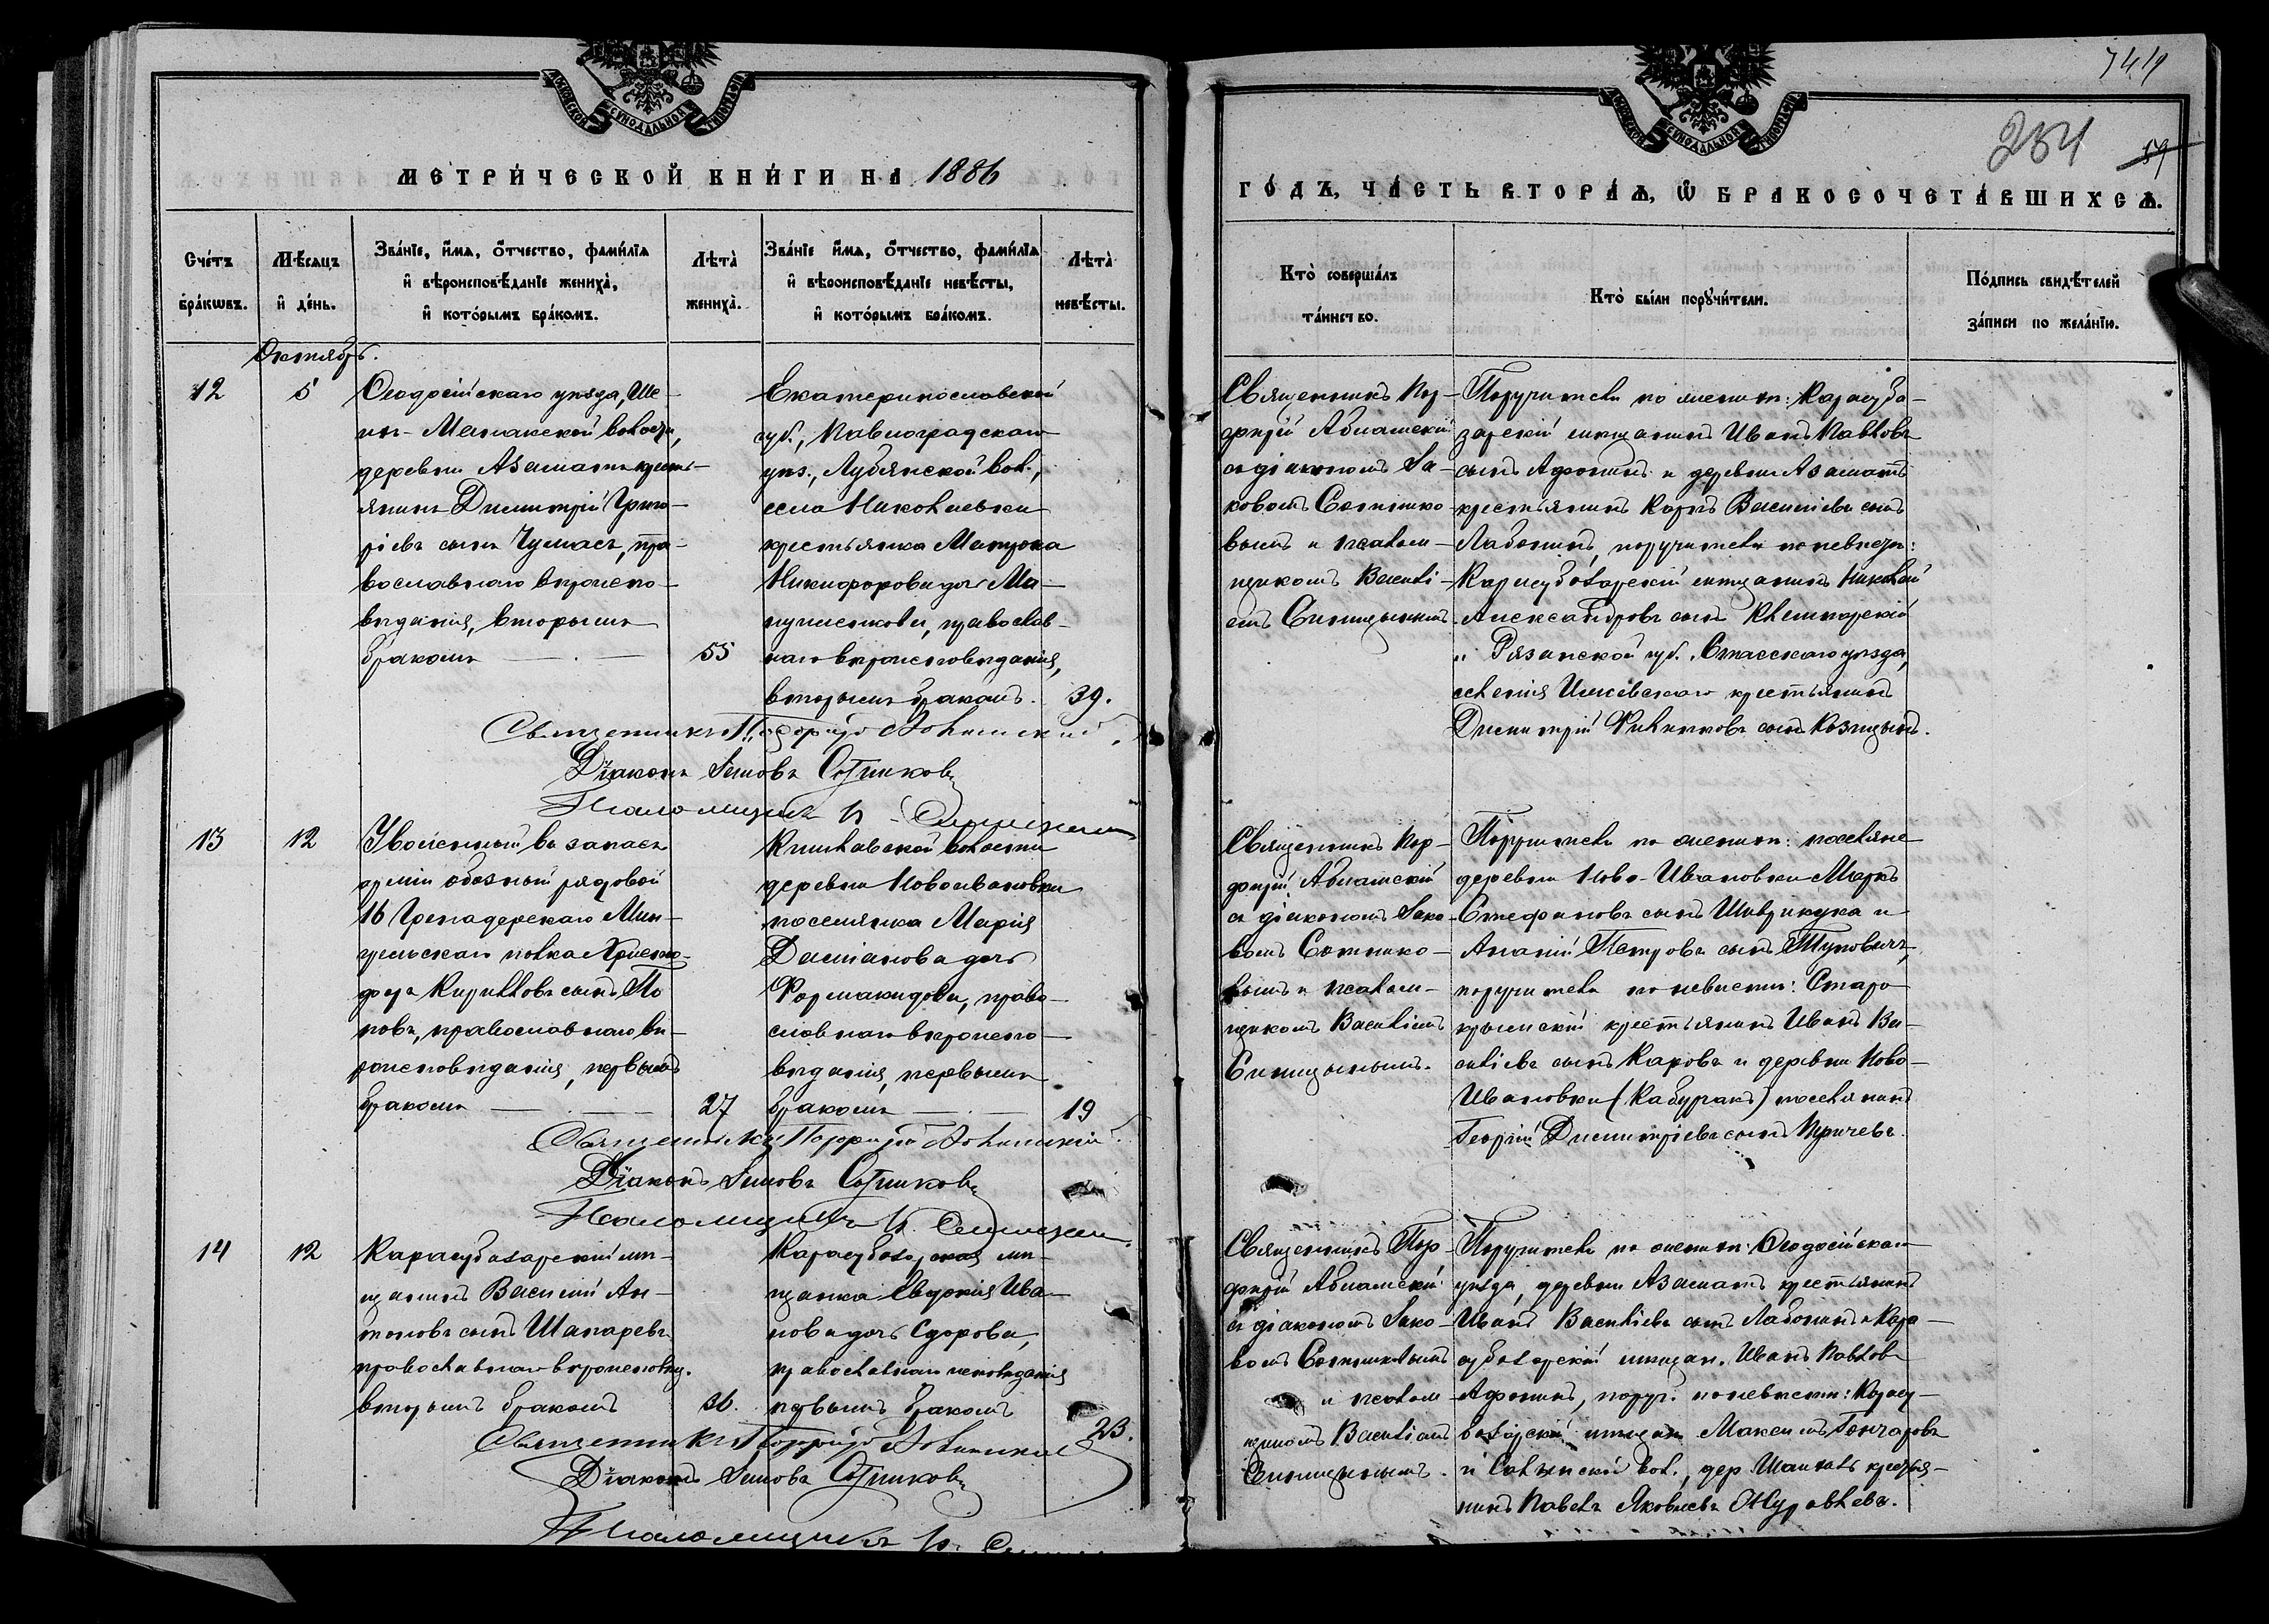 7414
284 59
МОСКОВСКОЙ СУНОДАЛЬНОЙ ТИПОГРАФІИ
МЕТРИ́ЧЕСКОЙ КНИ́ГИ НА 1886
ГО́ДЪ, ЧА́СТЬ ВТОРА́Ѧ, Ѡ БРАКОСОЧЕТА́ВШИХСѦ.
Сче́тъ бра́кѡвъ.
Мѣ́сѧцъ и́ де́нь.
Зва́нїе, и́мѧ, ѻ́тчество, фами́лїѧ
и́ вѣроисповѣ́данїе жениха̀,
и́ кото́рымъ бра́комъ.
Лѣта̀ жениха̀.
Зва́нїе и́мѧ, ѻ́тчество, фами́лїѧ
и́ вѣроисповѣ́данїе невѣ́сты,
и́ кото́рымъ бра́комъ.
Лѣта̀ невѣ́сты.
Кто̀ соверша́лъ
та́инство.
Кто̀ бы́ли порꙋчи́тели.
По́дпись свидѣ́телей
за́писи по жела́нїю.
Октябрь.
12
5
Ѳеодосійскаго уѣзда, Ше-
ихъ-Монакской волости,
деревни Азаматъ кресть-
янинъ Димитрій Григо-
ріевъ сынъ Чумакъ, пра-
вославнаго вѣроиспо-
вѣданія, вторымъ
бракомъ
55
Екатеринославской
губ., Павлоградскаго
уѣз., Лубянской вол.,
села Николаевки
крестьянка Матрона
Никифорова дочь
православ-
наго вѣроисповѣданія,
вторымъ бракомъ.
39.
Священникъ Пор-
фирій
съ діакономъ Іа-
ковомъ Сотнико-
вымъ и псалом-
щикомъ Василі-
емъ Синицынымъ
Поручители по женихѣ: Карасуба-
зарскій мѣщанинъ Иванъ Павловъ
сынъ Афонинъ и деревни Азаматъ
крестьянинъ Карпъ Васильевъ сынъ
Лабонинъ, поручители по невѣстѣ:
Карасубазарскій мѣщанинъ Николай
Александровъ сынъ
и Рязанской губ. Спасскаго уѣзда,
селенія Ижевскаго крестьянинъ
Димитрій Филипповъ сынъ Казицынъ.
Священникъ Порфирій
Діаконъ Іаковъ Сотниковъ
Псаломщикъ В. Синицынъ
13
12
Уволенный въ запасъ
арміи обозный рядовой
16 Гренадерскаго Мин-
грельскаго полка Христо-
форъ Кирилловъ сынъ По
повъ, православнаго вѣ-
роисповѣданія, первымъ
бракомъ
27
Кишлавской волости
деревни Новоивановки
поселянка Марія
Даміанова дочь
Фармакидова, право-
славнаго вѣроиспо-
вѣданія, первымъ
бракомъ
19
Священникъ Пор-
фирій
съ діакономъ Іако-
вомъ Сотнико-
вымъ и псалом-
щикомъ Василіемъ
Синицынымъ.
Поручители по женихѣ: поселяне
деревни Ново-Ивановки Маркъ
Стефановъ сынъ Шаврикука и
Ананій Петровъ сынъ
поручители по невѣстѣ: Старо
крымскій крестьянинъ Иванъ Ва-
силіевъ сынъ Каровъ и деревни Ново-
Ивановки (Кабурчакъ) поселянинъ
Георгій Димитріевъ сынъ
Священникъ Порфирій
Діаконъ Іаковъ Сотниковъ
Псаломщикъ В. Синицынъ.
14
12
Карасубазарскій мѣ-
щанинъ Василій Ан-
тоновъ сынъ Шапаревъ
православнаго вѣроисповѣд.
вторымъ бракомъ
36.
Карасубазарская мѣ-
щанка Евдокія Ива-
нова дочь
православнаго исповѣданія
первымъ бракомъ
23.
Священникъ Пор-
фирій
съ діакономъ Іако-
вомъ Сотниковымъ
и псалом-
щикомъ Василіемъ
Синицынымъ.
Поручители по женихѣ: Ѳеодосійскаго
уѣзда, деревни Азаматъ крестьянинъ
Иванъ Васильевъ сынъ Лабонинъ и Кара-
субазарскій мѣщан. Иванъ Павловъ
Афонинъ, поруч. по невѣстѣ: Карасу-
базарскій мѣщан. Максимъ Гончаровъ
и Салынской вол., дер. кресть-
нинъ Павелъ Яковлевъ Журавлевъ.
Священникъ Порфирій
Діаконъ Іаковъ Сотниковъ
Псаломщикъ В.